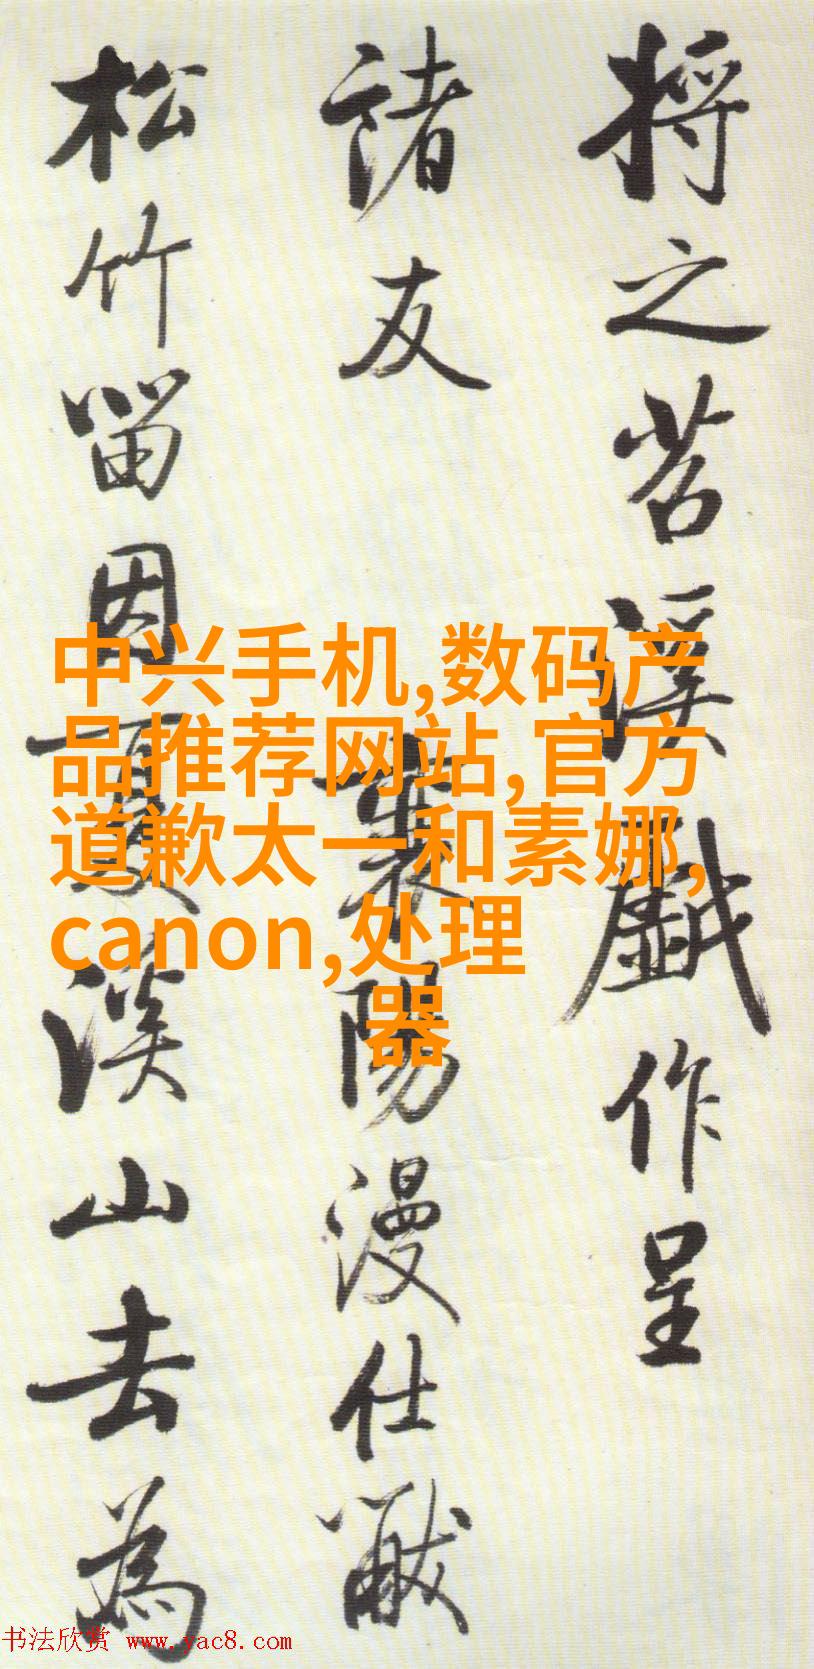 将之苕溪戲作呈
諸友
襄陽漫仕黻
松竹留因夏溪山去為
中兴手机,数码产
品推荐网站,官方
道歉太一和素娜,
canon,处理
器
书法欣赏 www.yac8.com